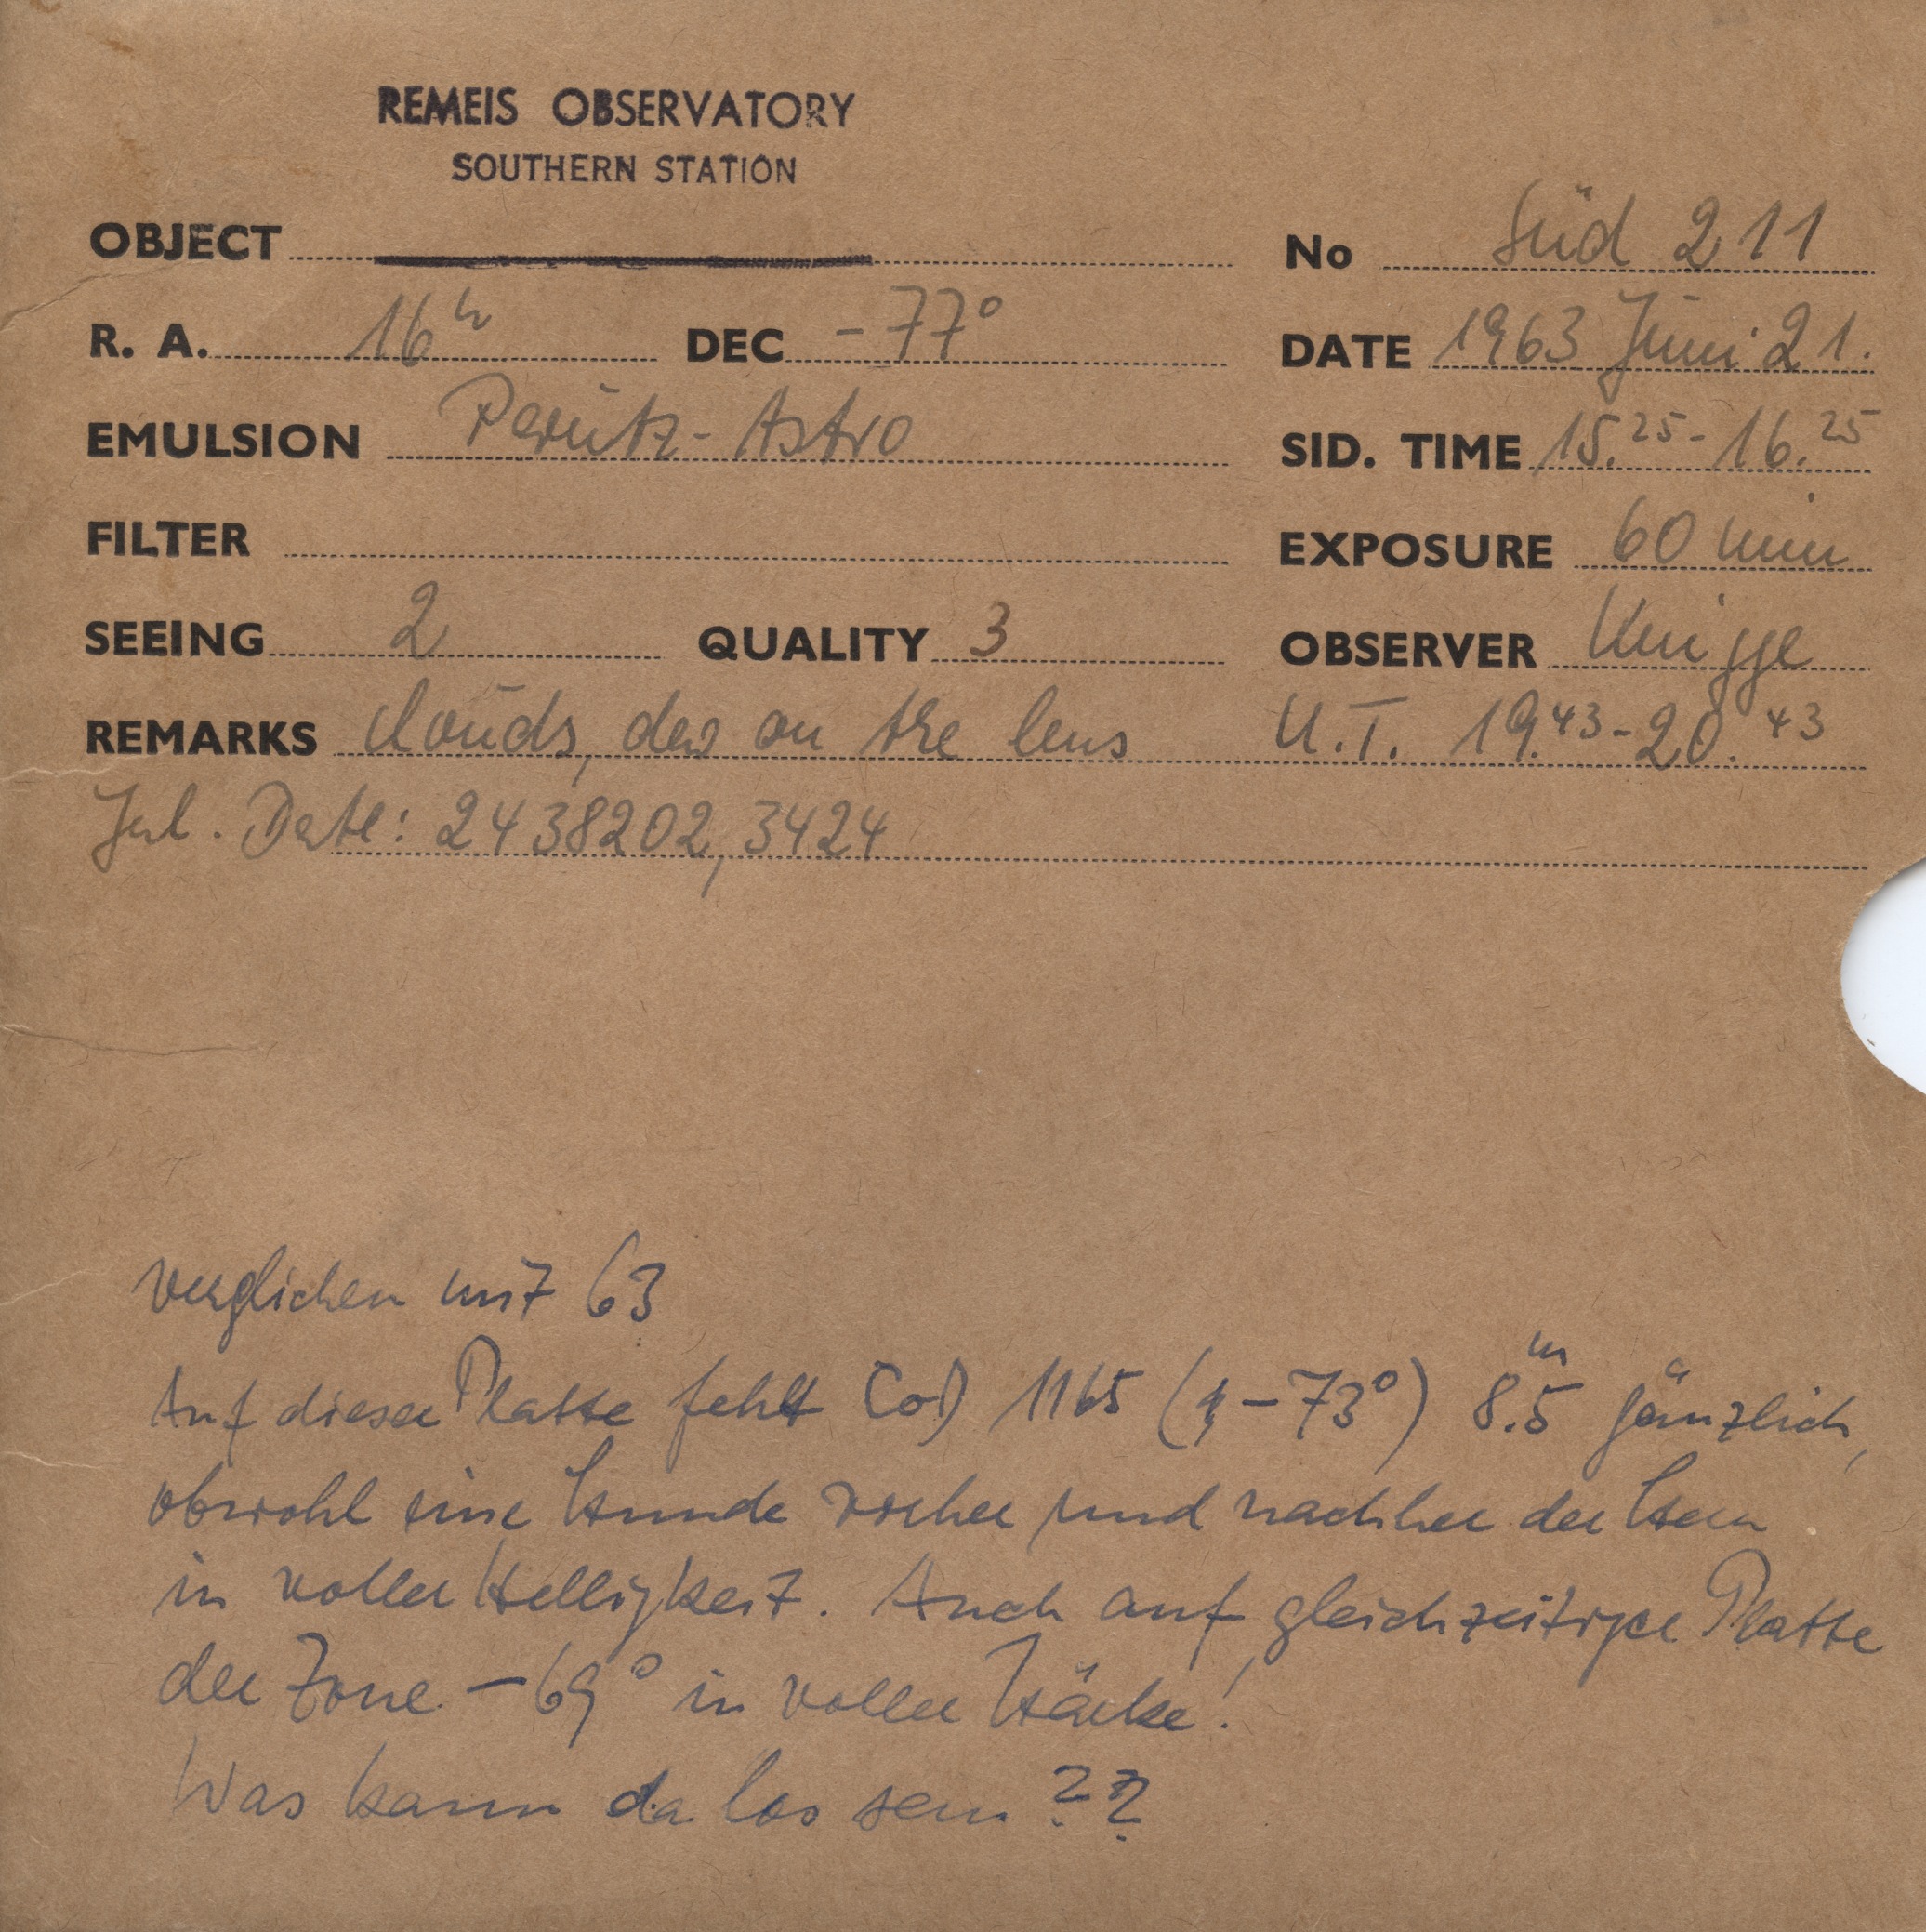 REMEIS OBSERVATORY
SOUTHERN STATION
OBJECT No Süd 211
R. A. 16h DEC -77° DATE 1963 Juni 21.
EMULSION Perutz-Astro SID. TIME 15.25-16.25
FILTER EXPOSURE 60 min
SEEING 2 QUALITY 3 OBSERVER Knigge
REMARKS clouds, dew on the lens U.T. 19.43-20.43
Jul. Date: 2438202,3424
verglichen mit 63
Auf dieser Platte fehlt CoD 1165 ( -73°) 8.5m gänzlich,
obwohl eine Stunde vorher und nachher der Stern
in voller Helligkeit. Auch auf gleichzeitiger Platte
der Zone -69° in voller Stärke!
Was kann da los sein ??